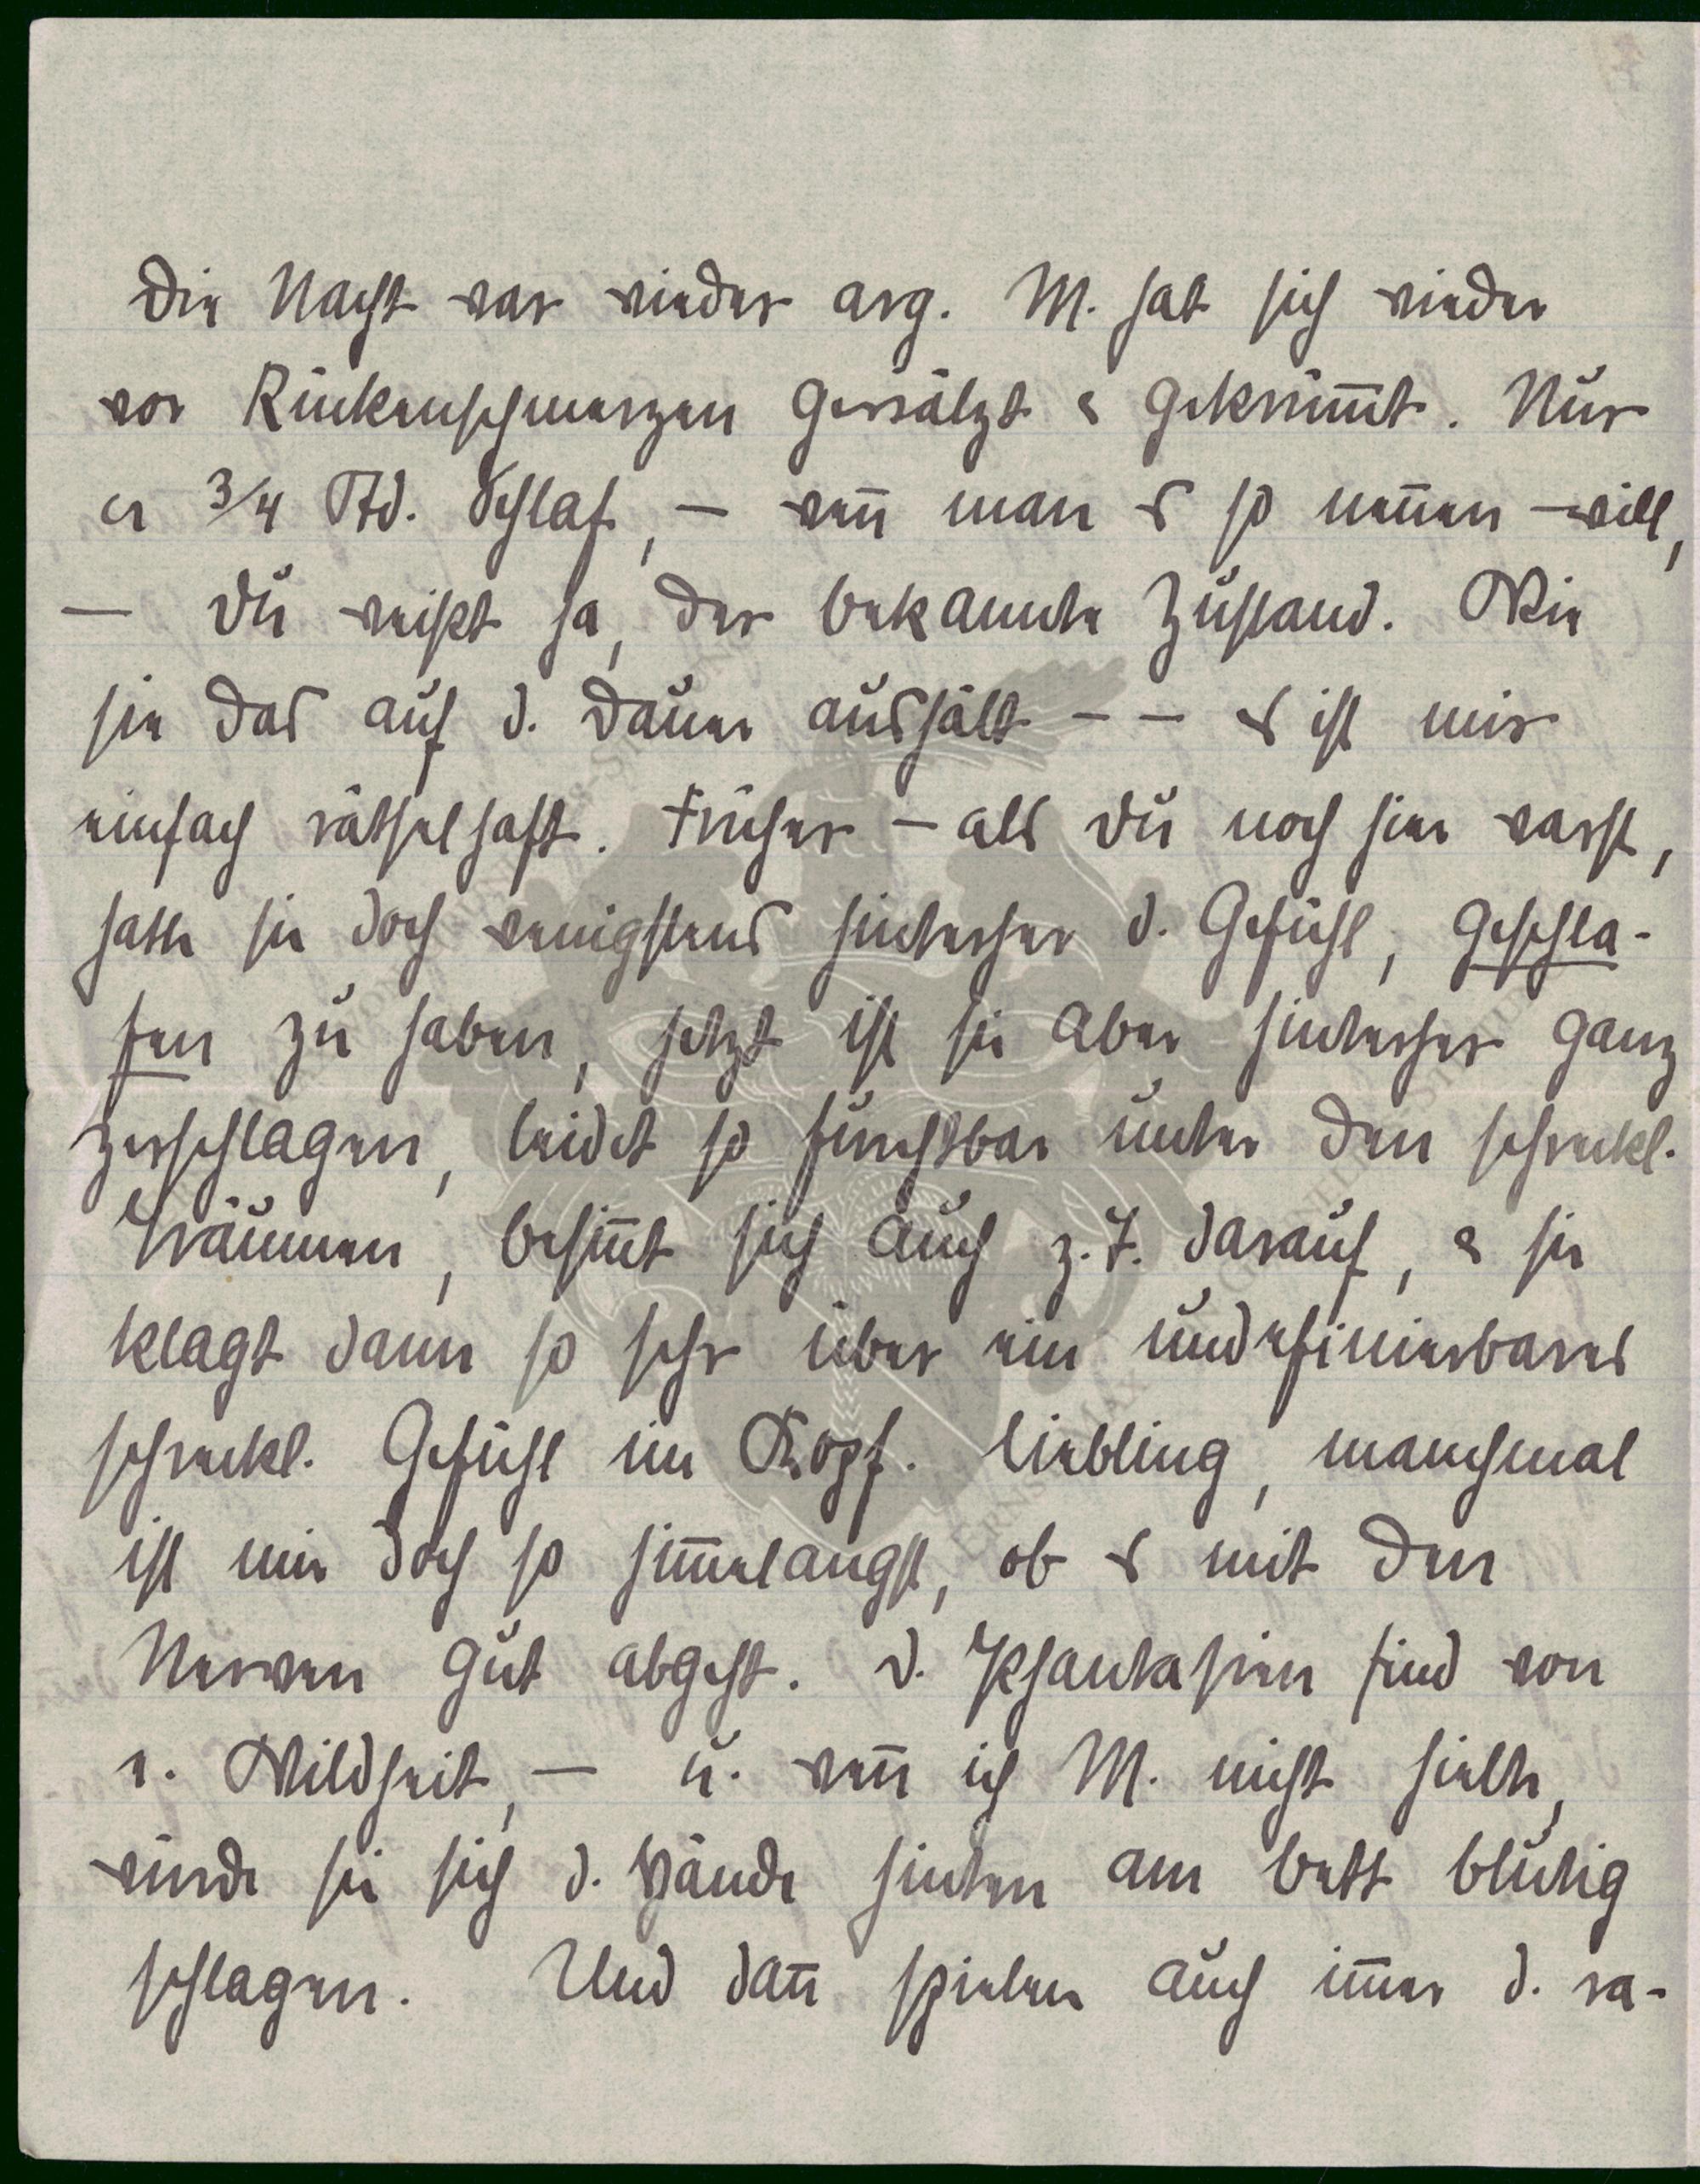 Die Nacht war wieder arg. M. hat sich wieder
vor Rückenschmerzen gewälzt & gekrüm̅t. Nur
ca 3/4 Std. Schlaf, – wen̅ man es so nen̅en will,
– Du weißt ja, der bekannte Zustand. Wie
sie das auf d. Dauer aushält – – es ist mir
einfach rätselhaft. Früher – als Du noch hier warst,
hatte sie doch wenigstens hinterher d. Gefühl, geschla-
fen zu haben, jetzt ist sie aber hinterher ganz
zerschlagen, leidet so furchtbar unter den schreckl.
Träumen, besin̅t sich auch z.T. darauf, & sie
klagt dann so sehr über ein undefinierbares
schreckl. Gefühl im Kopf. Liebling, manchmal
ist mir doch so him̅elangst, ob es mit den
Nerven gut abgeht. D. Phantasien sind von
e. Wildheit, – u. wen̅ ich M. nicht hielte,
würde sie sich d. Hände hinten am Bett blutig
schlagen. Und dan̅ spielen auch im̅er d. ra-